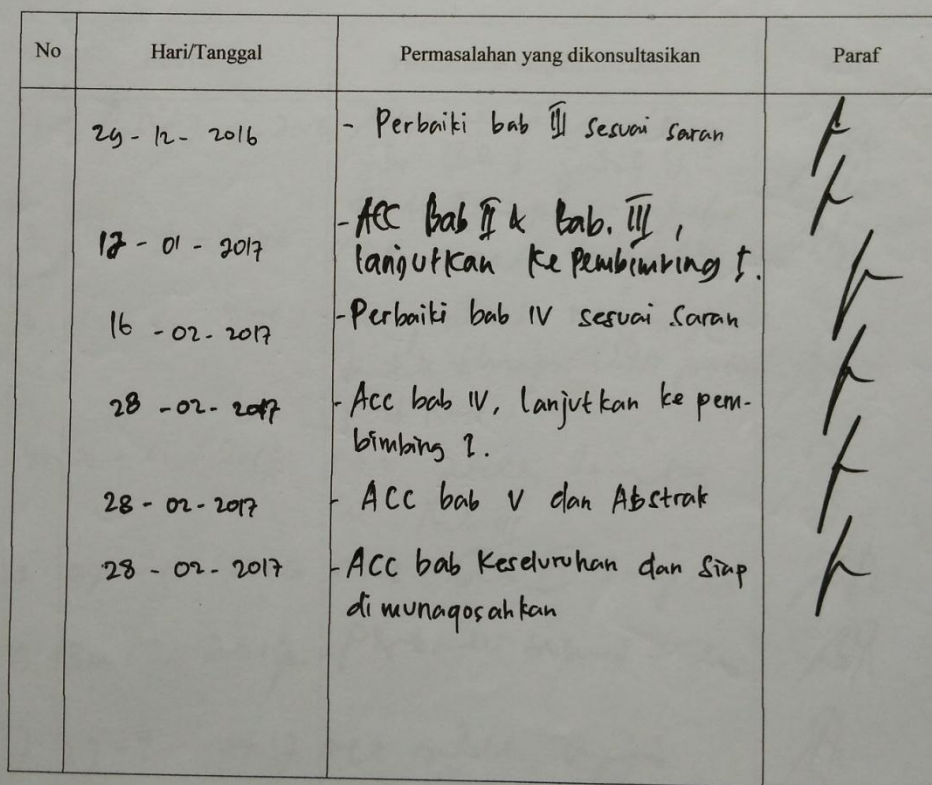 No Hari/Tanggal Permasalahan yang dikonsultasikan Paraf
29-12-2016 - Perbaiki bab III sesuai saran
- Acc Bab II & bab. III,
12-01-2017 lanjutkan ke pembimbing I.
16-02-2017 - Perbaiki bab IV sesuai saran
28-02-2017 - Acc bab IV, lanjutkan ke pem-
bimbing I.
28-02-2017 - ACC bab V dan Abstrak
28-02-2017 - ACC bab Keseluruhan dan siap
di munaqosahkan